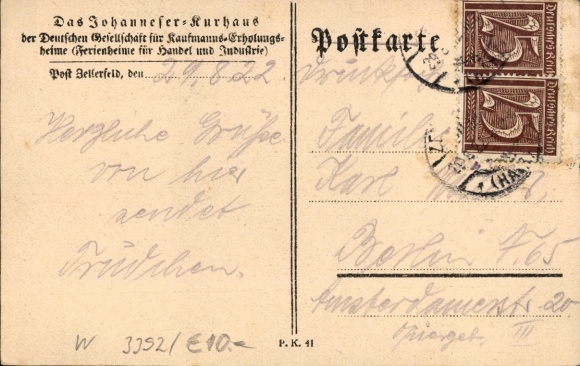 Das Johanneser-Kurhaus
der Deutschen Gesellschaft für Kaufmanns-Erholungs-
heime (Ferienheime für Handel und Industrie)
Post Zellerfeld, den 29.8.22
Herzliche Grüße
von hier
sendet
Trudchen.
W 3392/ €10.-
P. K. 41
Postkarte
Drucks
Familie
Karl
Berlin N. 65
Amsterdamerstr 20
Quergeb. III
75
Deutsches Reich
75
Deutsches Reich